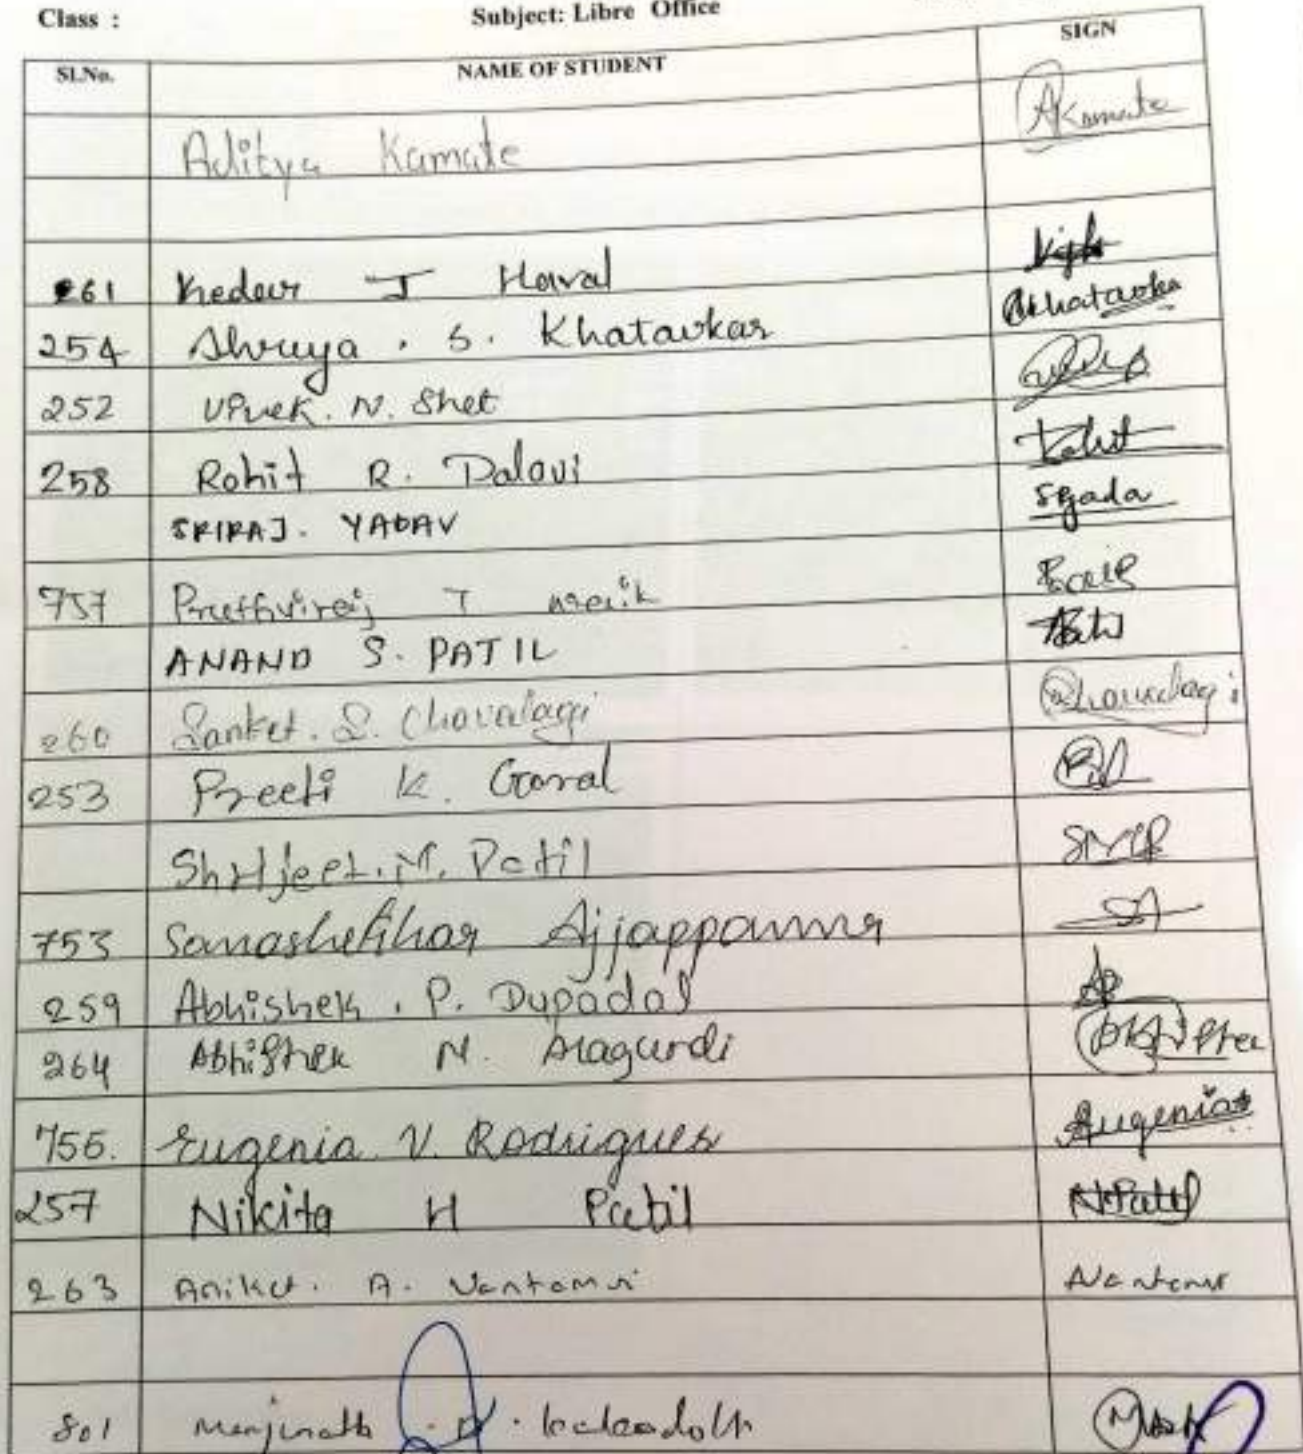 Class : Subject: Libre Office
Sl.No. NAME OF STUDENT SIGN
Aditya Kamate AKamate
261 Kedar J Haval
254 Shreya . S. Khatavkar Khatavkar
252 Vivek. N. Shet
258 Rohit R. Dalavi Rohit
SRIRAJ. YADAV
757 Pruthviraj T
ANAND S. PATIL
260 Sanket. S. Chavalagi Chavalagi
253 Preeti K. Gaval
Shrijeet. M. Patil SMP
753 Ajjappanavar SA
259 Abhishek . P. Dupadal AP
264 Abhishek N. Aragurdi
756. Eugenia V. Rodrigues Eugenia
257 Nikita H Patil NPatil
263 Aniket. A. Vantamuri
801 Manjunath